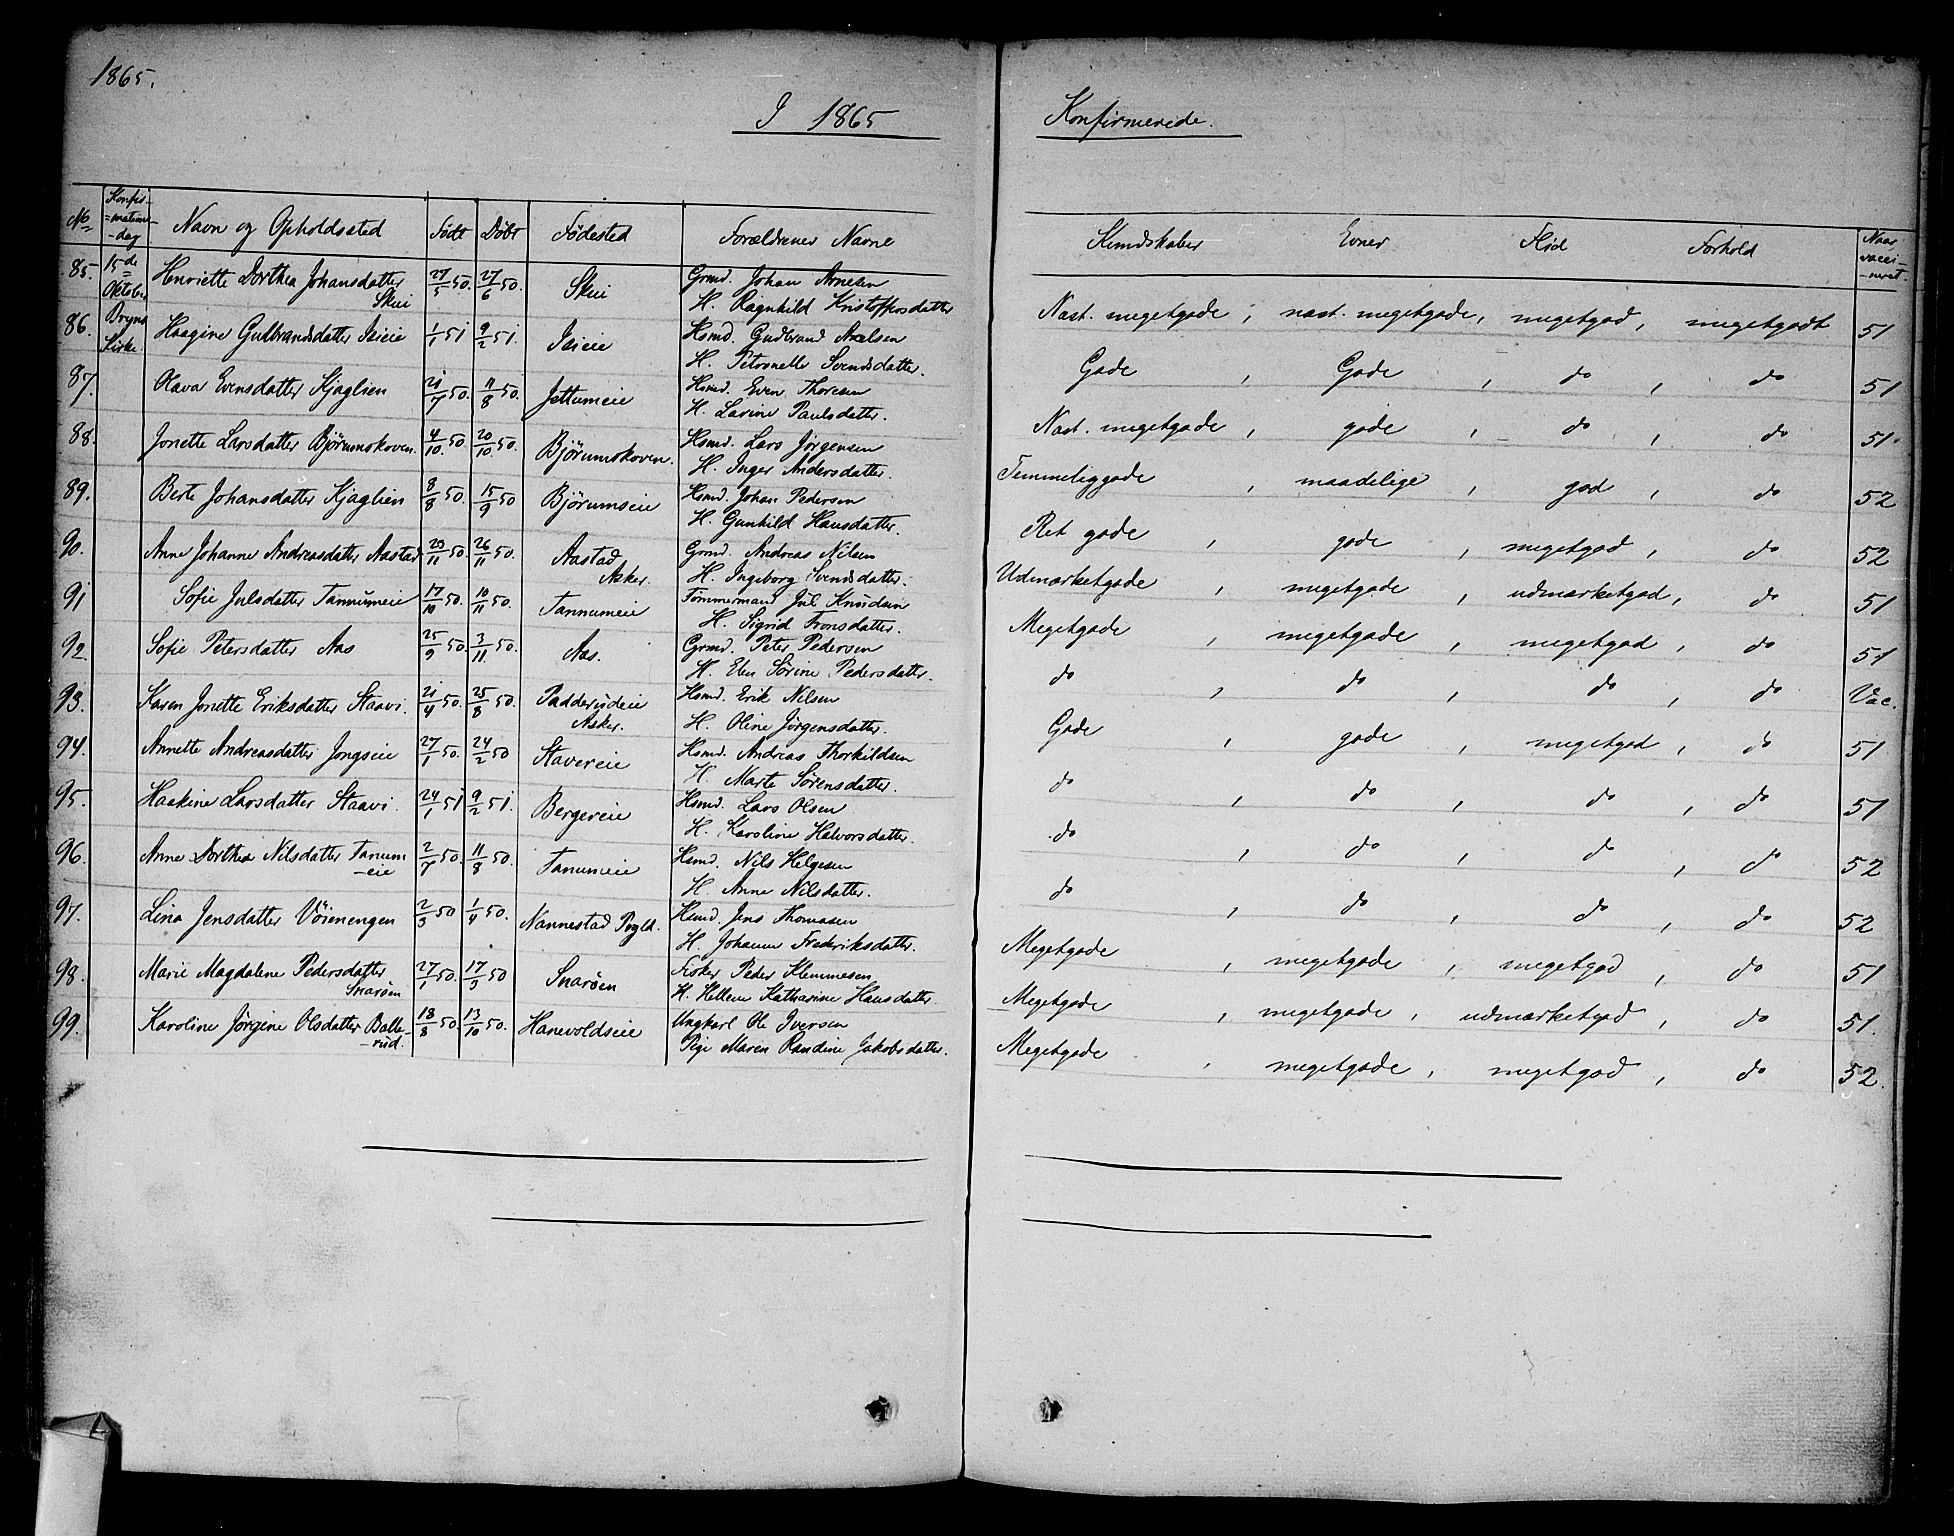 1865.
I 1865 Konfirmerede.
No Konfir-=mations-=dag Navn og Opholdssted Födt Döbt Födested Forældrenes Navne Kundskaber Evner Flid Forhold Naar vacci-=neret
85. 15-de Oktober Henriette Dorthea Johansdatter Skui 27/5 50. 27/6 50. Skui Grmd. Johan Arnesen
H. Ragnhild Kristoffersdatter Nast. megetgode, nast. megetgode, megetgod, megetgodt 51
86. Bryns Kirke. Haagine Gudbrandsdatter Isieie 1/1 51 9/2 51. Isieie Hsmd. Gudbrand Axelsen
H. Petronelle Svendsdatter. Gode, Gode, do, do 51
87. Olava Evensdatter Kjaglien 21/7 50. 11/8 50. Jettumeie Hsmd. Even Thoresen
H. Larine Paulsdatter. Nast. megetgode, gode, do, do 51.
88. Jonette Larsdatter Bjørumskoven. 4/10 50. 20/10 50. Bjørumskoven. Hsmd. Lars Jørgensen
H. Inger Andersdatter. Temmeliggode, maadelige, god, do 52
89. Berte Johansdatter Kjaglien 8/8 50. 15/9 50 Bjørumseie Hsmd. Johan Pedersen
H. Gunhild Hansdatter. Ret gode, gode, megetgod, do 52
90. Anne Johanne Andreasdatter Aastad 23/11 50. 26/11 50. Aastad Asker. Grmd. Andreas Nilsen
H. Ingeborg Svendsdatter. Udmærketgode, megetgode, udmærketgod, do 51.
91 Sofie Julsdatter Tannumeie 17/10 50. 10/11 50. Tannumeie Tømmermand Jul Knudsen
H. Sigrid Tronsdatter. Megetgode, megetgode, megetgod, do 51
92. Sofie Petersdatter Aas 25/9 50. 3/11 50. Aas. Grmd. Peter Pedersen
H. Elen Sörine Pedersdatter. do, do, do, do Vac.
93. Karen Jonette Eriksdatter Staavi. 21/4 50. 25/8 50. Padderudeie Asker. Hsmd. Erik Nilsen
H. Oline Jørgensdatter. Gode, gode, megetgod, do 51
94. Annette Andreasdatter Jongseie 27/1 50. 24/2 50 Stavereie Hsmd. Andreas Thorkildsen
H. Marte Sörensdatter. do, do, do, do 51
95. Haakine Larsdatter Staavi. 24/1 51 9/2 51. Bergereie Hsmd. Lars Olsen
H. Karoline Halvorsdatter. do, do, do, do 52
96. Anne Dorthea Nilsdatter Tanum-eie 2/7 50. 11/8 50. Tanumeie Hsmd. Nils Helgesen
H. Anne Nilsdatter. do, do, do, do 52
97. Lina Jensdatter Vöienengen 2/3 50 1/4 50. Nannestad Pgld. Hsmd. Jens Thomasen
H. Johanne Frederiksdatter. Megetgode, megetgode, megetgod, do 51
98. Marie Magdalene Pedersdatter Snarøen 27/1 50. 17/3 50 Snarøen Fisker Peder Klemmesen
H. Hellene Katharine Hansdatter Megetgode, megetgode, udmærketgod, do 51.
99. Karoline Jörgine Olsdatter Balle-rud. 18/8 50. 13/10 50. Hanevoldseie Ungkarl Ole Iversen
Pige Maren Randine Jakobsdatter. Megetgode, megetgode, megetgod, do 52.